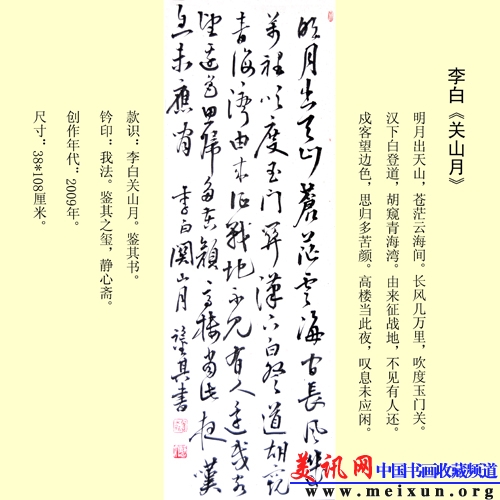 李白《关山月》
明月出天山，苍茫云海间。长风几万里，吹度玉门关。
汉下白登道，胡窥青海湾。由来征战地，不见有人还。
戍客望边色，思归多苦颜。高楼当此夜，叹息未应闲。
明月出天山蒼茫雲海间長風幾
萬裡吹度玉門関漢下白登道胡窺
青海湾由来征戰地不见有人还戍客
望边色思歸多苦颜高楼當此夜嘆
息未應闲 李白関山月 鑒其書
款识：李白关山月。鉴其书。
钤印：我法。鉴其之玺，静心斋。
创作年代：2009年。
尺寸：38*108厘米。
美讯网 中国书画收藏频道
www.meixun.org